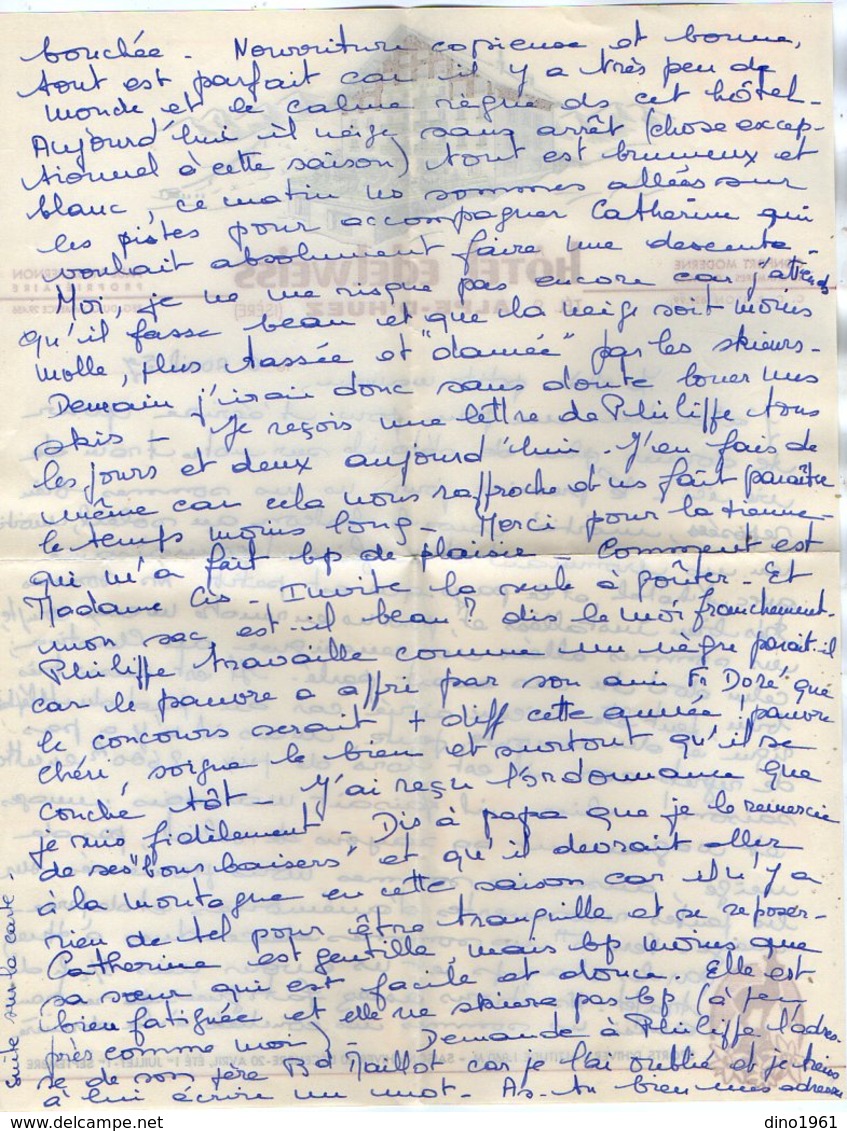 bouchée - Nourriture copieuse et bonne,
tout est parfait car il y a très peu de
monde et le calme règne ds cet hôtel -
Aujourd'hui il neige sans arrêt (chose excep-
tionnel à cette saison) tout est brumeux et
blanc, ce matin ns sommes allées sur
les pistes pour accompagner Catherine qui
voulait absolument faire une descente -
Moi, je ne me risque pas encore car j'attends
qu'il fasse beau et que la neige soit moins
molle, plus tassée et "damée" par les skieurs -
Demain j'irai donc sans doute louer mes
skis - Je reçois une lettre de Philippe tous
les jours et deux aujourd'hui - J'en fais de
même car cela nous rapproche et ns fait paraître
le temps moins long - Merci pour la tienne -
qui m'a fait bp de plaisir - Comment est
Madame Cis - Invite la seule à goûter - Et
mon sac est-il beau? dis le moi franchement -
Philippe travaille comme un nègre parait-il
car le pauvre a appri par son ami Fr Doré que
le concours serait + diff cette année, pauvre
chéri, soigne le bien et surtout qu'il se
couche tôt - J'ai reçu l'ordonnance que
je suis fidèlement - Dis à papa que je le remercie
de ses "bons baisers" et qu'il devrait aller
à la montagne en cette saison car il n'y a
rien de tel pour être tranquille et se reposer -
Catherine est gentille, mais bp moins que
sa sœur qui est facile et douce. Elle est
bien fatiguée et elle ne skiera pas bp (à peu
près comme moi) - Demande à Philippe l'adres-
se de son père Bd Maillot car je l'ai oublié et je
à lui écrire un mot - As-tu bien mes adresses
suite sur la carte.
HÔTEL EDELWEISS
ALPE-D'HUEZ
(ISÈRE)
CONFORT MODERNE
PROPRIÉTAIRE
dino1961